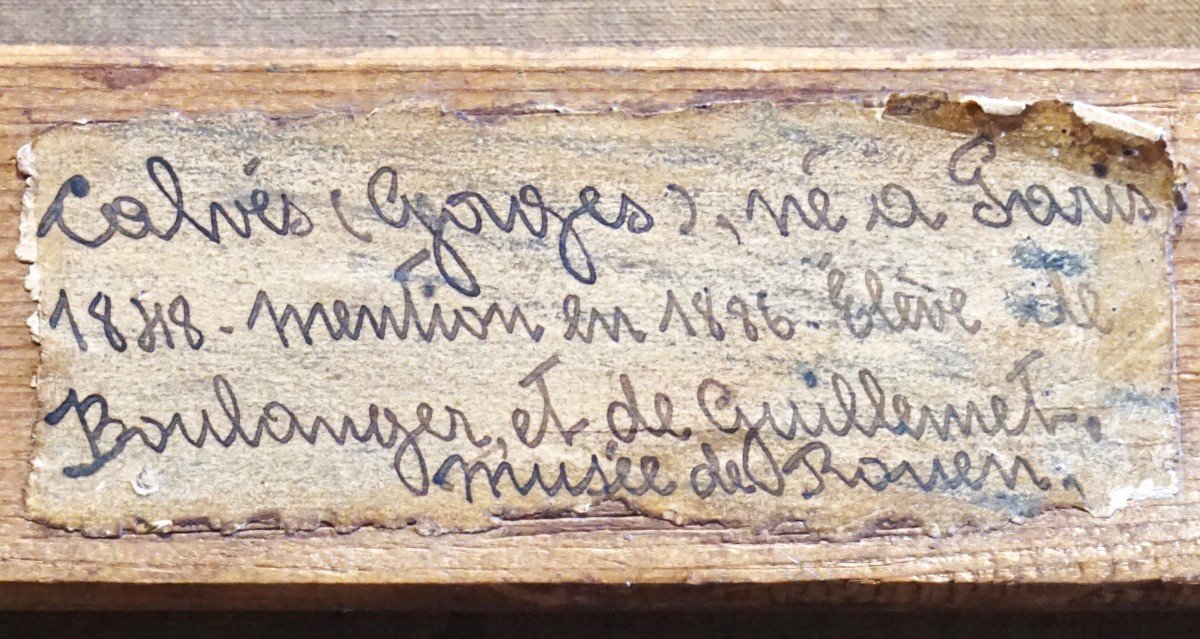 Calvès (Georges), né a Paris
1848 - mention en 1886. Elève de
Boulanger, et de Guillemet.
musée de Rouen.